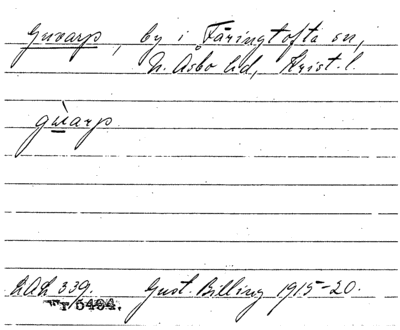 Guvarp, by i Färingtofta sn,
N. Åsbo hd, Krist. l.
gùarp
LAL 339.
Gust. Billing 1915-20.
5494.